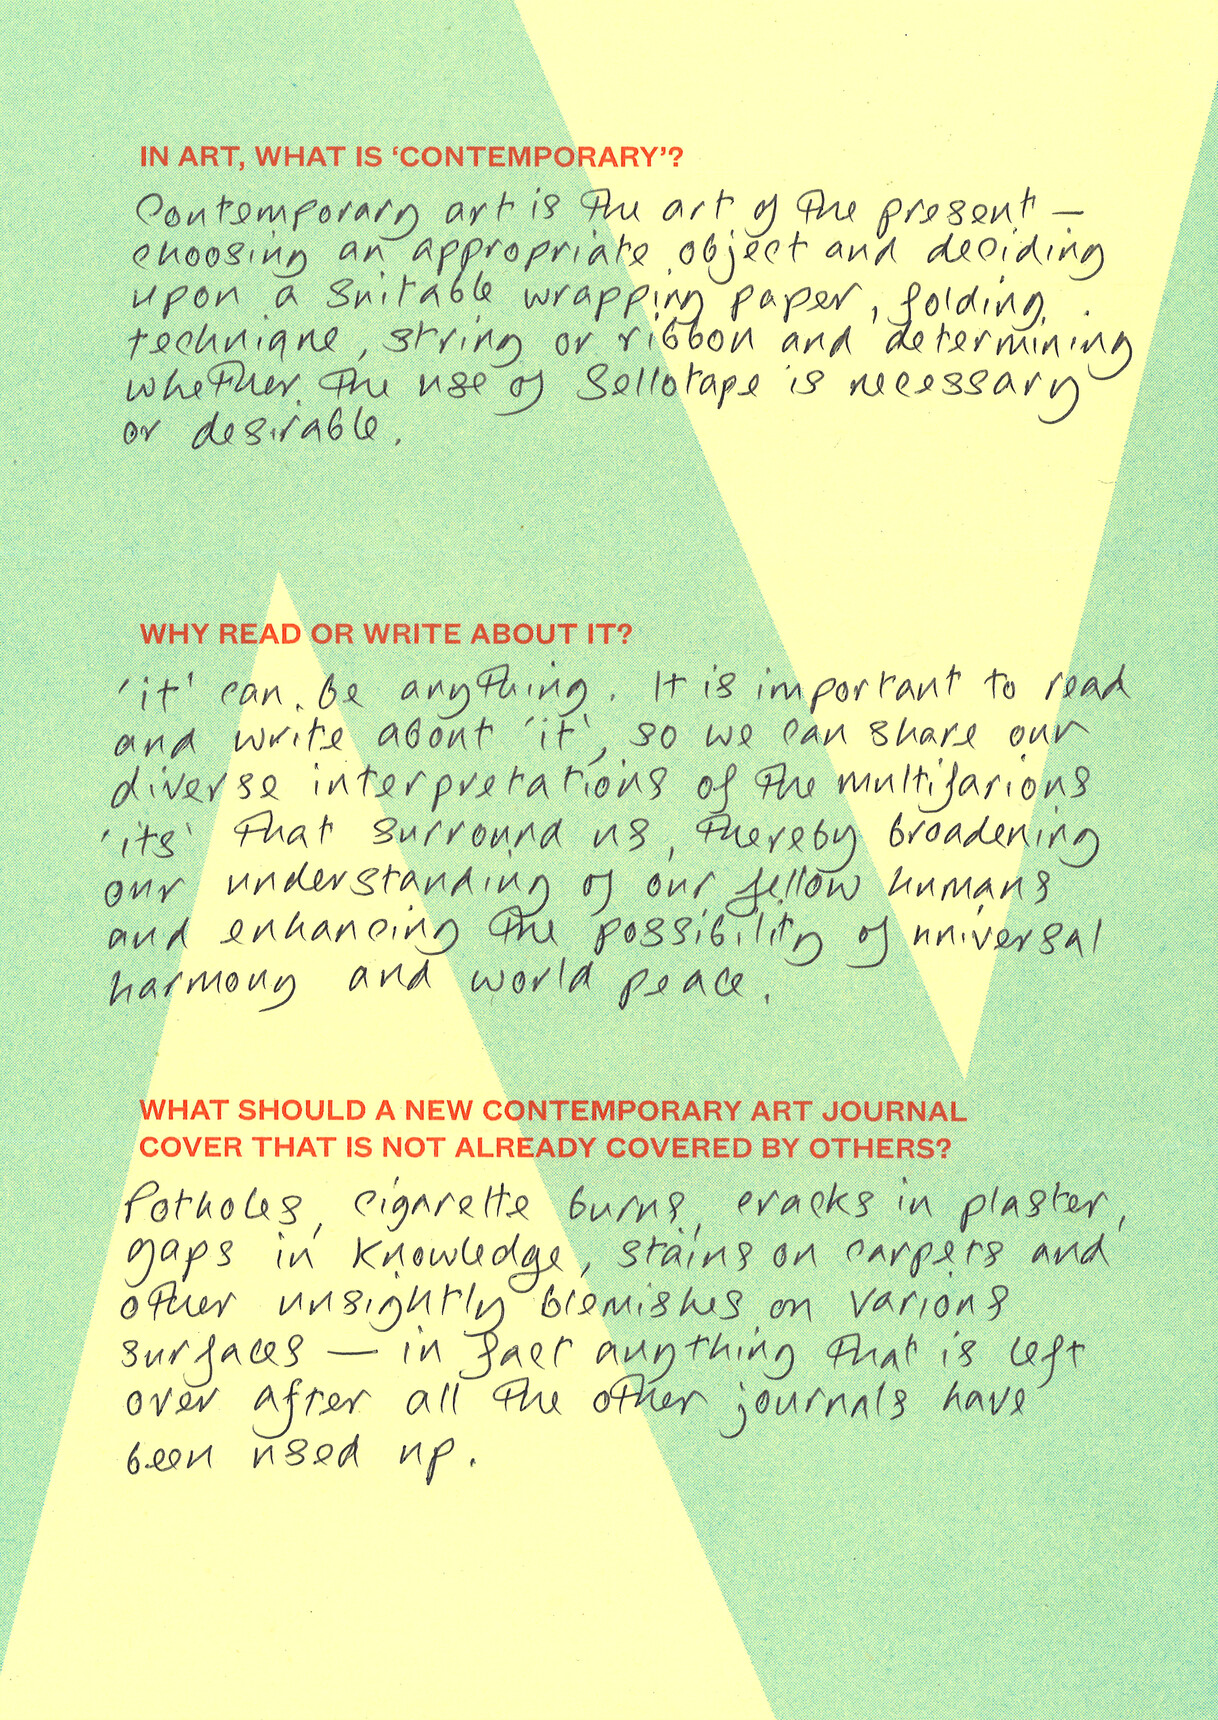 IN ART, WHAT IS ‘CONTEMPORARY’?
Contemporary art is the art of the present —
choosing an appropriate object and deciding
upon a suitable wrapping paper, folding
technique, string or ribbon and determining
whether the use of Sellotape is necessary
or desirable.
WHY READ OR WRITE ABOUT IT?
'it' can be anything. It is important to read
and write about 'it', so we can share our
diverse interpretations of the multifarious
'its' that surround us, thereby broadening
our understanding of our fellow humans
and enhancing the possibility of universal
harmony and world peace.
WHAT SHOULD A NEW CONTEMPORARY ART JOURNAL
COVER THAT IS NOT ALREADY COVERED BY OTHERS?
Potholes, cigarette burns, cracks in plaster,
gaps in knowledge, stains on carpets and
other unsightly blemishes on various
surfaces — in fact anything that is left
over after all the other journals have
been used up.